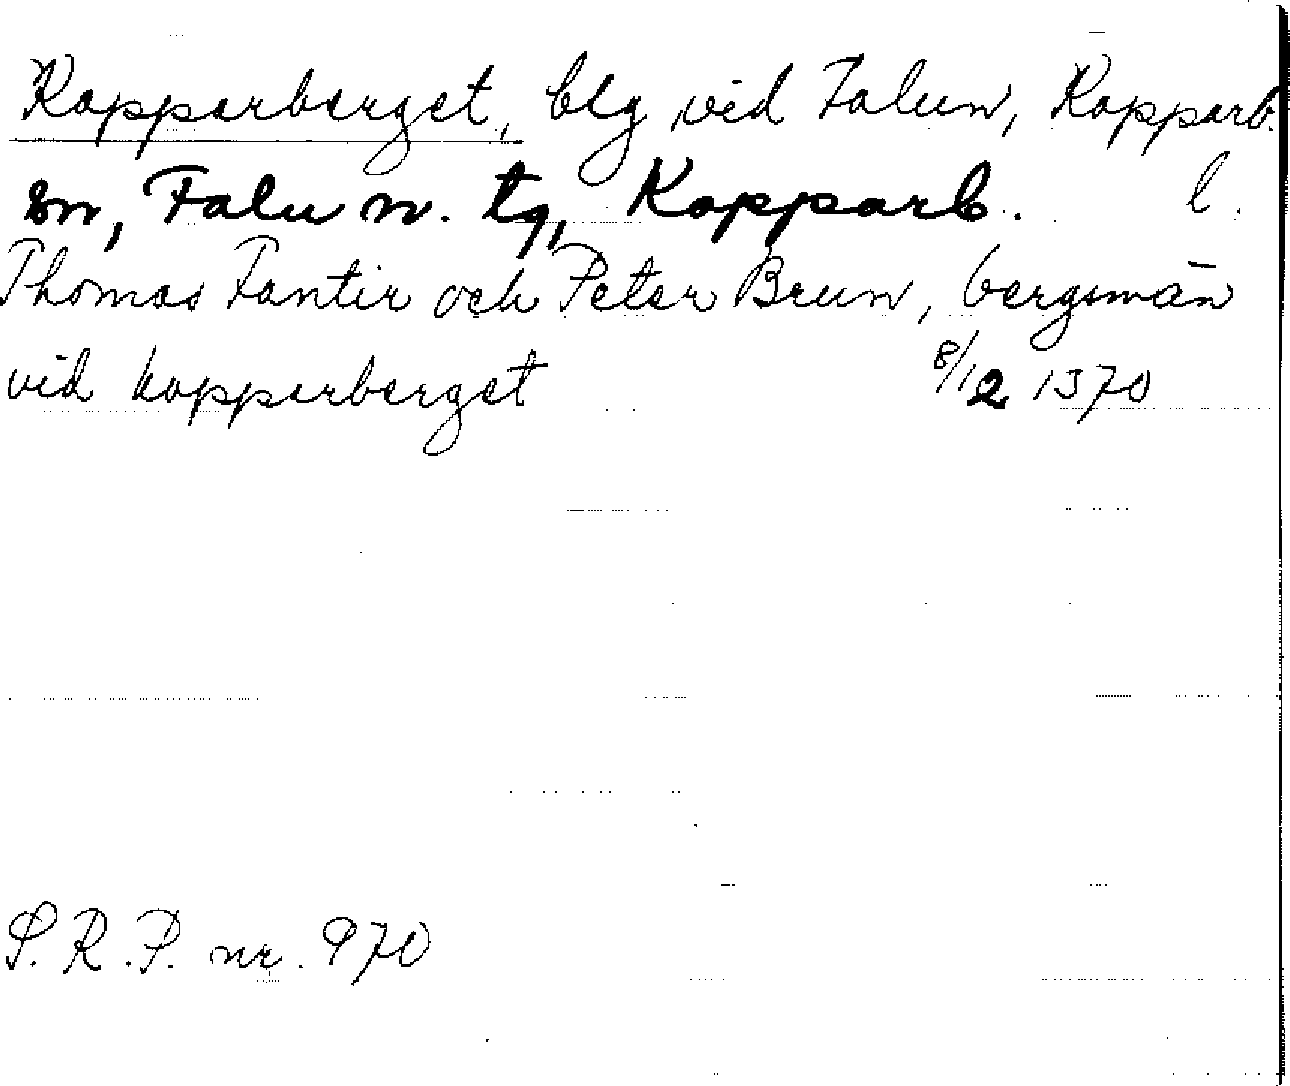 Kopparberget, blg vid Falun, Kopparb.
sn, Falu n. tg, Kopparb. l.
Thomas Fantir och Peter Brun, bergsmän
vid kopparberget 8/12 1370
S.R.P. nr. 970